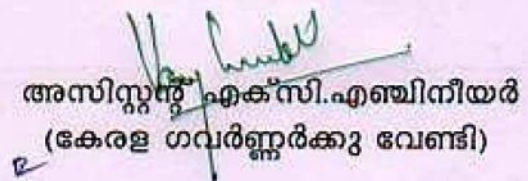 അസിസ്റ്റന്റ് എക്സി.എഞ്ചിനീയർ
(കേരള ഗവർണ്ണർക്കു വേണ്ടി)